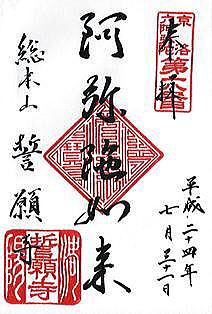 奉拝
京洛
六阿弥陀
第六番
平成二十四年
七月三十一日
阿弥陀如来
総本山 誓願寺
誓願寺